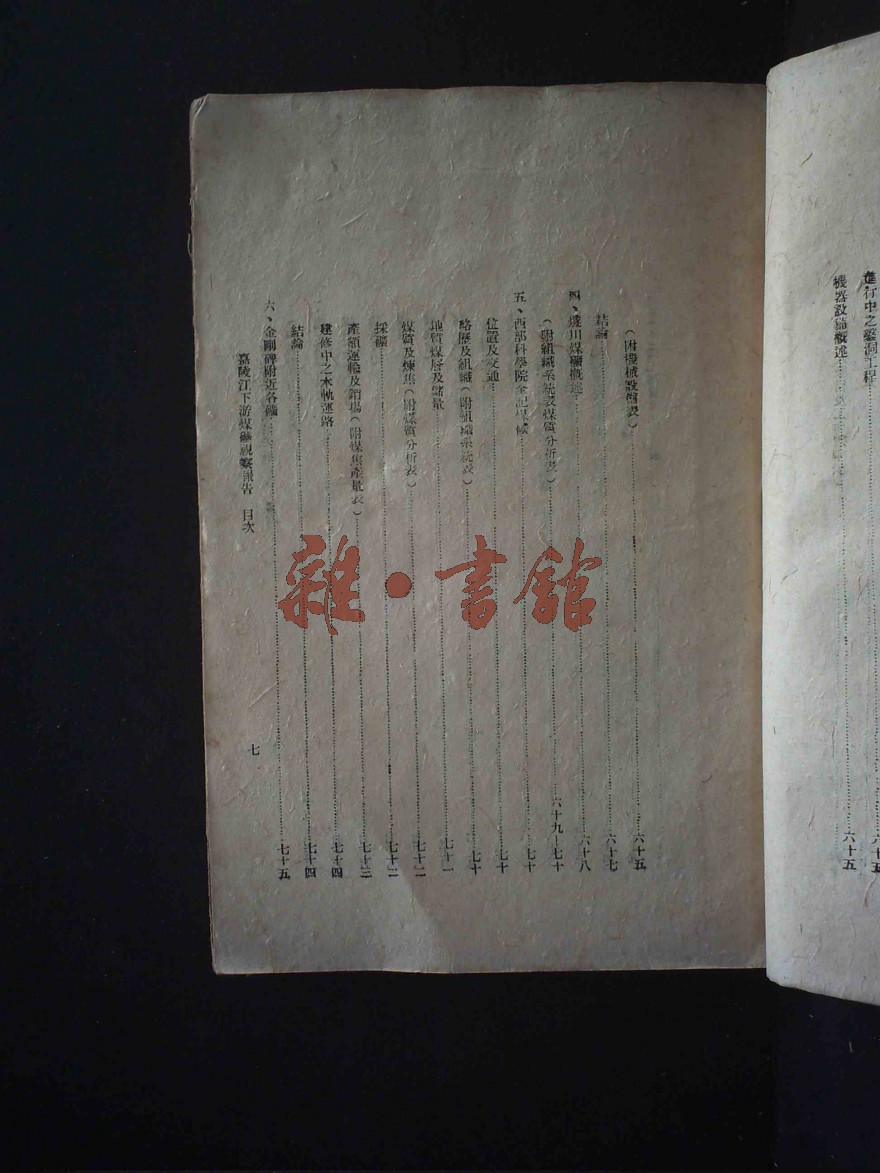 進行中之鑿洞工程……六十五
機器設備概述……六十五
（附機械設備表）……六十五
結論……六十七
四、燧川煤礦概述……六十八
（附組織系統表煤質分析表）……六十九—七十
五、西部科學院全記煤廠……七十
位置及交通……七十
略歷及組織（附組織系統表）……七十
地質煤層及儲量……七十一
煤質及煉焦（附煤質分析表）……七十二
採礦……七十二
產額運輸及銷場（附煤焦產量表）……七十三
建修中之木軌運路……七十四
結論……七十四
六、金剛碑附近各礦……七十五
嘉陵江下游煤礦視察報告 目次
七
雜·書館